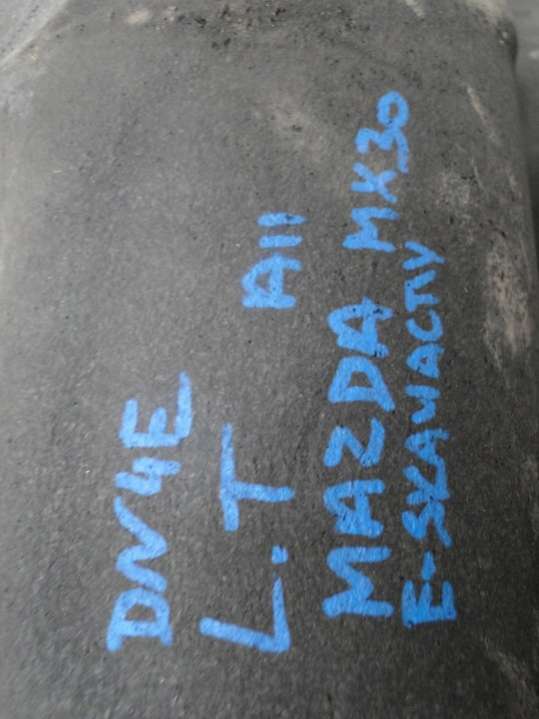 DN4E
L.T A11
MAZDA MX30
E-SKAYACTIV